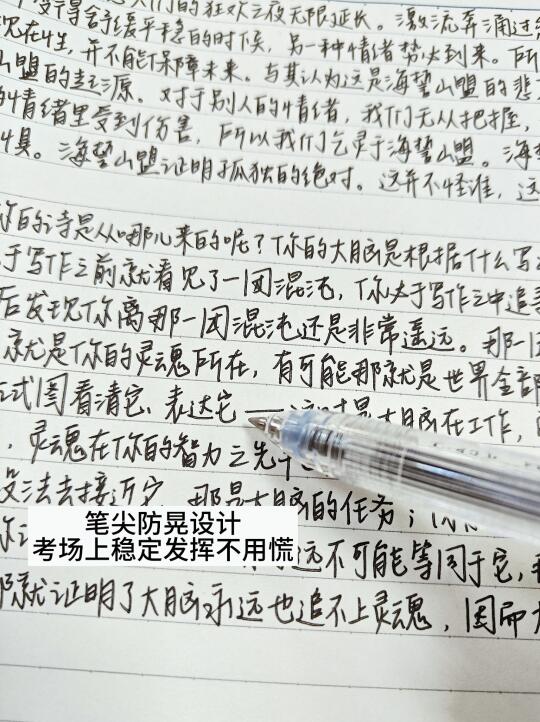 没等舒缓平稳的时候,另一种情绪势必到来。所
现在性,并不能保障未来。与其认为这是海誓山盟的悲
山盟的起源。对于别人的情绪,我们无从把握,
的情绪里受到伤害,所以我们乞灵于海誓山盟。海誓
具。海誓山盟证明孤独的绝对。这并不怪谁,这
你的诗是从哪儿来的呢?你的大脑是根据什么写
于写作之前就看见了一团混沌,你处于写作之中追寻
后发现你离那一团混沌还是非常遥远。那一团
就是你的灵魂所在,有可能那就是世界全部
试图看清它、表达它——这时是大脑在工作,
,灵魂在你的智力之先
没法去接近它,那是大脑的任务;
笔尖防晃设计
考场上稳定发挥不用慌
远不可能等同于它,
那就证明了大脑永远也追不上灵魂,因而